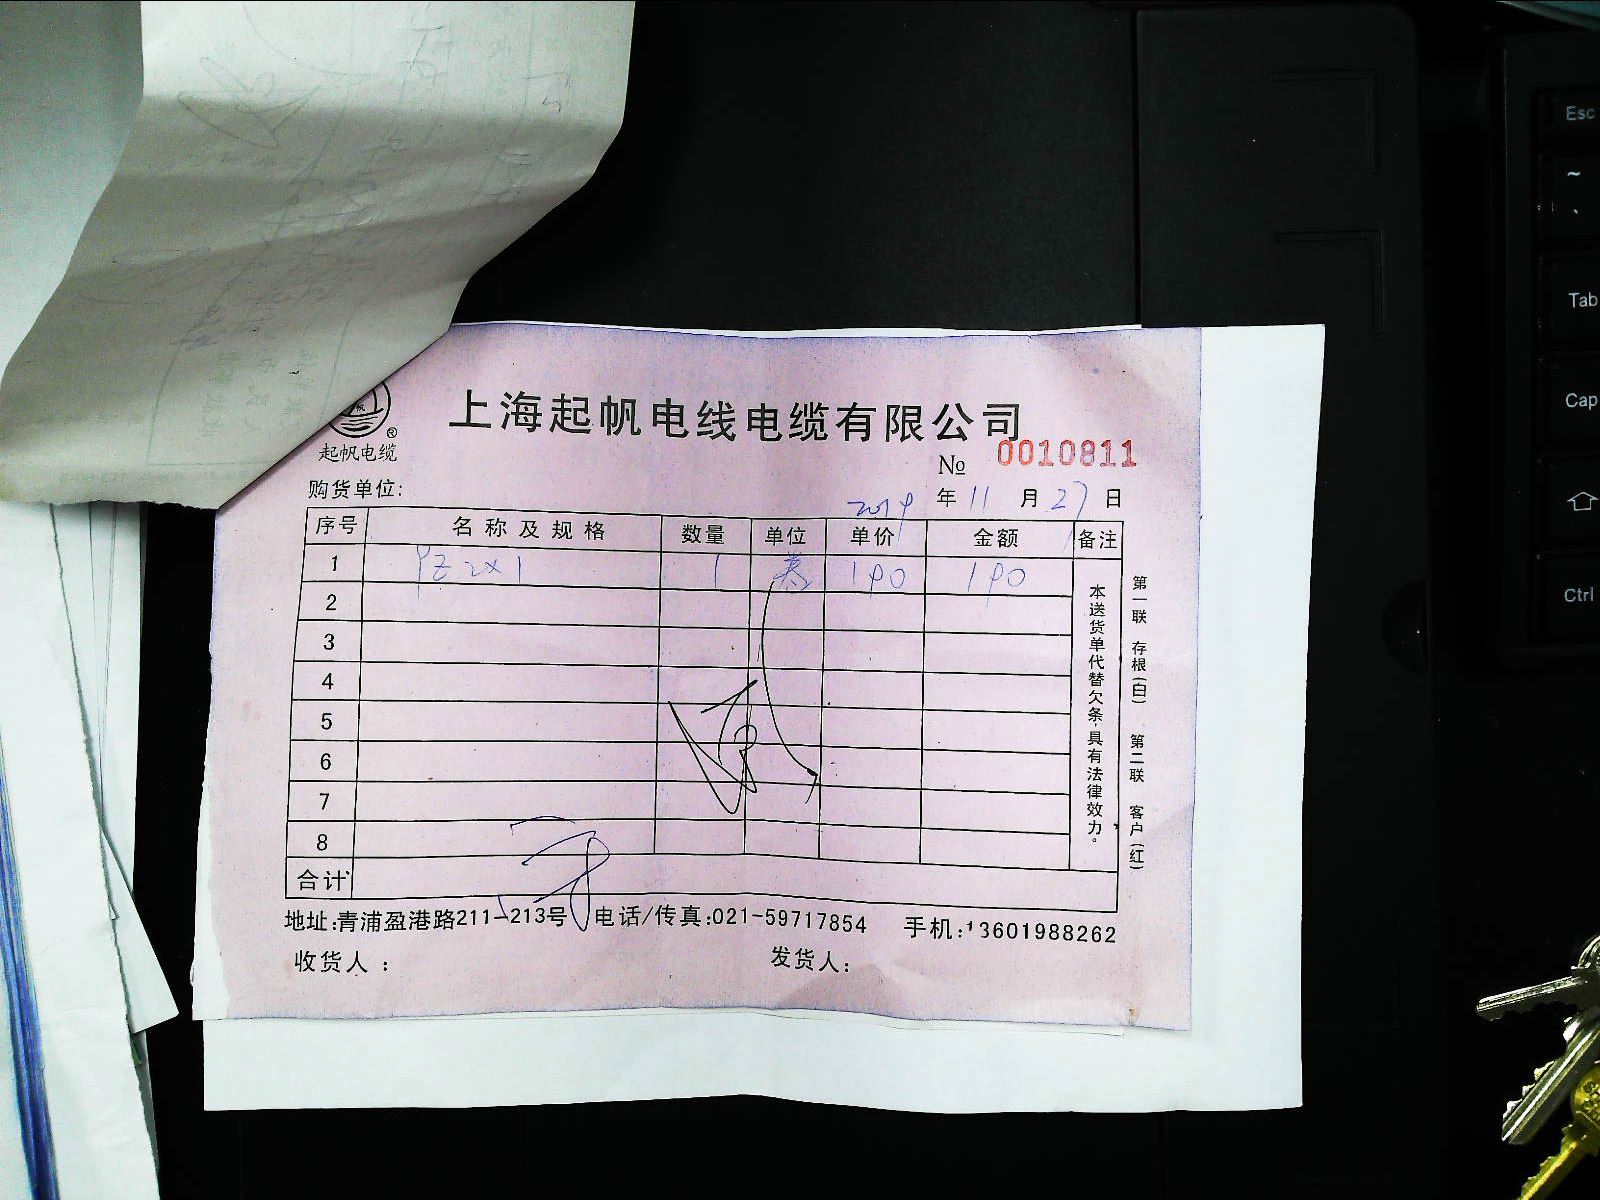 上海起帆电线电缆有限公司
起帆电缆
№ 0010811
购货单位:
2019 年 11 月 27 日
序号 名称及规格 数量 单位 单价 金额 备注
1 YZ 2×1 1 卷 190 190
2
3
4
5
6
7
8
合计
本送货单代替欠条,具有法律效力。
第一联 存根(白) 第二联 客户(红)
地址:青浦盈港路211-213号 电话/传真:021-59717854 手机:13601988262
收货人：
发货人:
Esc
~
`
Tab
Cap
Ctrl